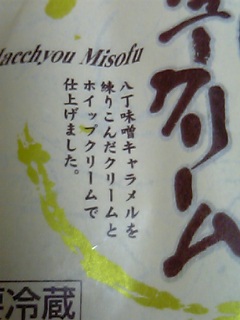 acchyou Misofu
ークリーム
八丁味噌キャラメルを
練りこんだクリームと
ホイップクリームで
仕上げました。
冷蔵